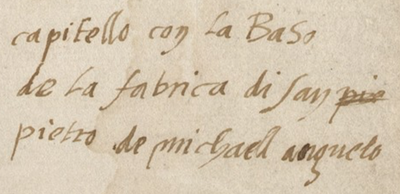 capitello con La Baso
de La fabrica di san pie
pietro de michaell angnelo